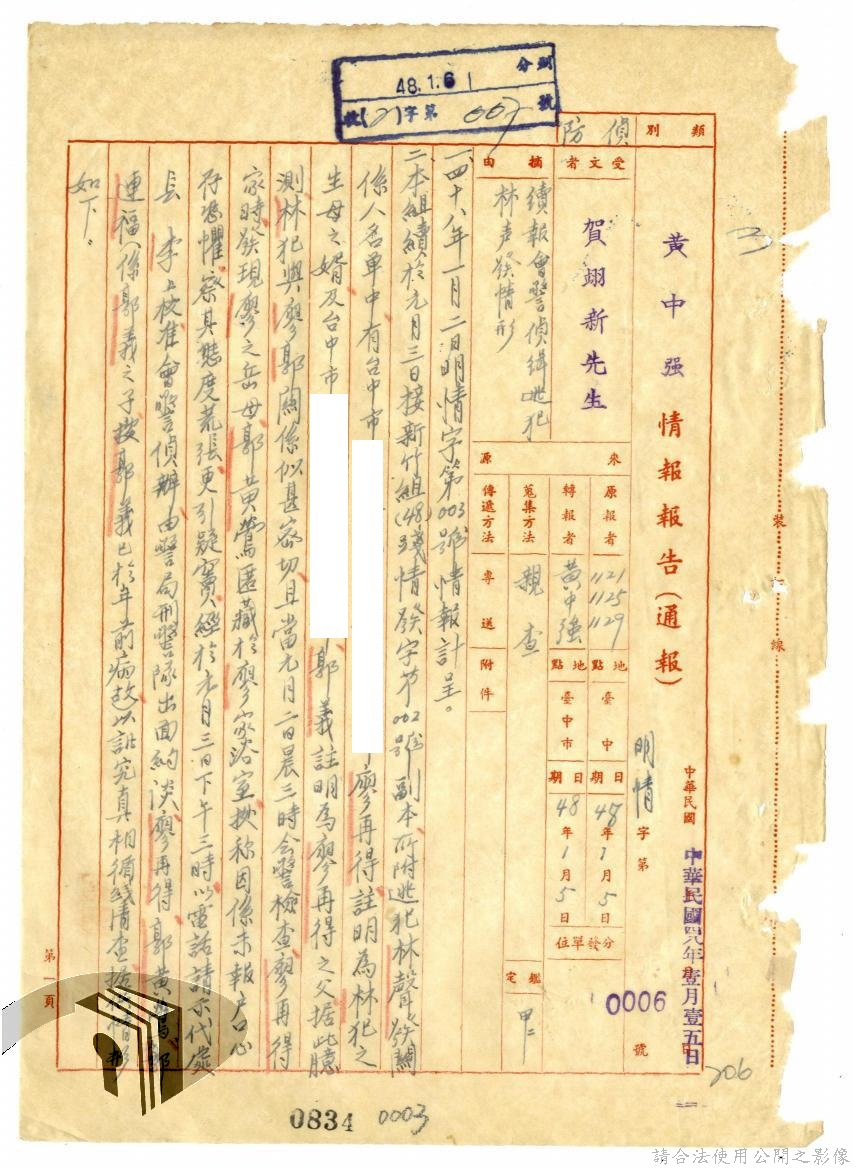 分類
48.1.6
收(2)字第 007 號
類別
偵防
黃中强情報報告(通報)
中華民國
中華民國四八年壹月壹五日
明情字第
0006
號
受文者
賀翊新先生
摘由
續報會警偵緝逃犯
林声發情形
來源
原報者
1121
1125
1129
地點
臺中
日期
48年1月5日
轉報者
黃中强
地點
臺中市
日期
48年1月5日
分發單位
蒐集方法
親查
傳遞方法
專送
附件
鑑定
甲二
一、四十八年一月二日明情字第003號情報計呈。
二、本組續於元月三日接新竹組(48)殘情發字第002號副本所附逃犯林聲發關
係人名單中有台中市
廖再得註明為林犯之
生母之婿及台中市
郭義註明為廖再得之父据此臆
測林犯與廖郭關係似甚密切且當元月二日晨三時会警檢查廖再得
家時發現廖之岳母郭黃鶯匿藏於廖家浴室撥称因係未報户口心
存恐懼察其態度荒張更引疑竇經於元月三日下午三時以電話請示代處
長李上校准會警偵辦由警局刑警隊出面約淡廖再得郭黃鶯郭
連福(係郭義之子按郭義已於年前病故)以詃究真相循線清查据
如下。
第一頁
裝
線
206
0834
0003
請合法使用公開之影像